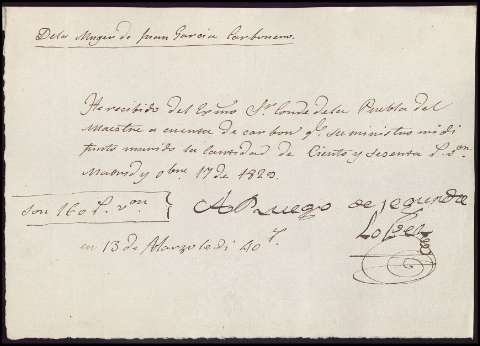 Dela Muger de Juan Garcia Carbonero.
He recibido del Exmo Sr. Conde dela Puebla del
Maestre a cuenta de carbon q.e suministro mi di
funto marido la cantidad de Ciento y sesenta r.s von.
Madrid y 9bre 17 de 1820
Son 160 r.s von
A Ruego de
Lopez
en 13 de Marzo le di 40 r.